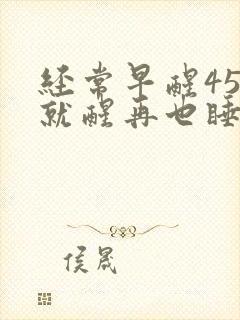 经常早醒45
就醒再也睡
侯晟